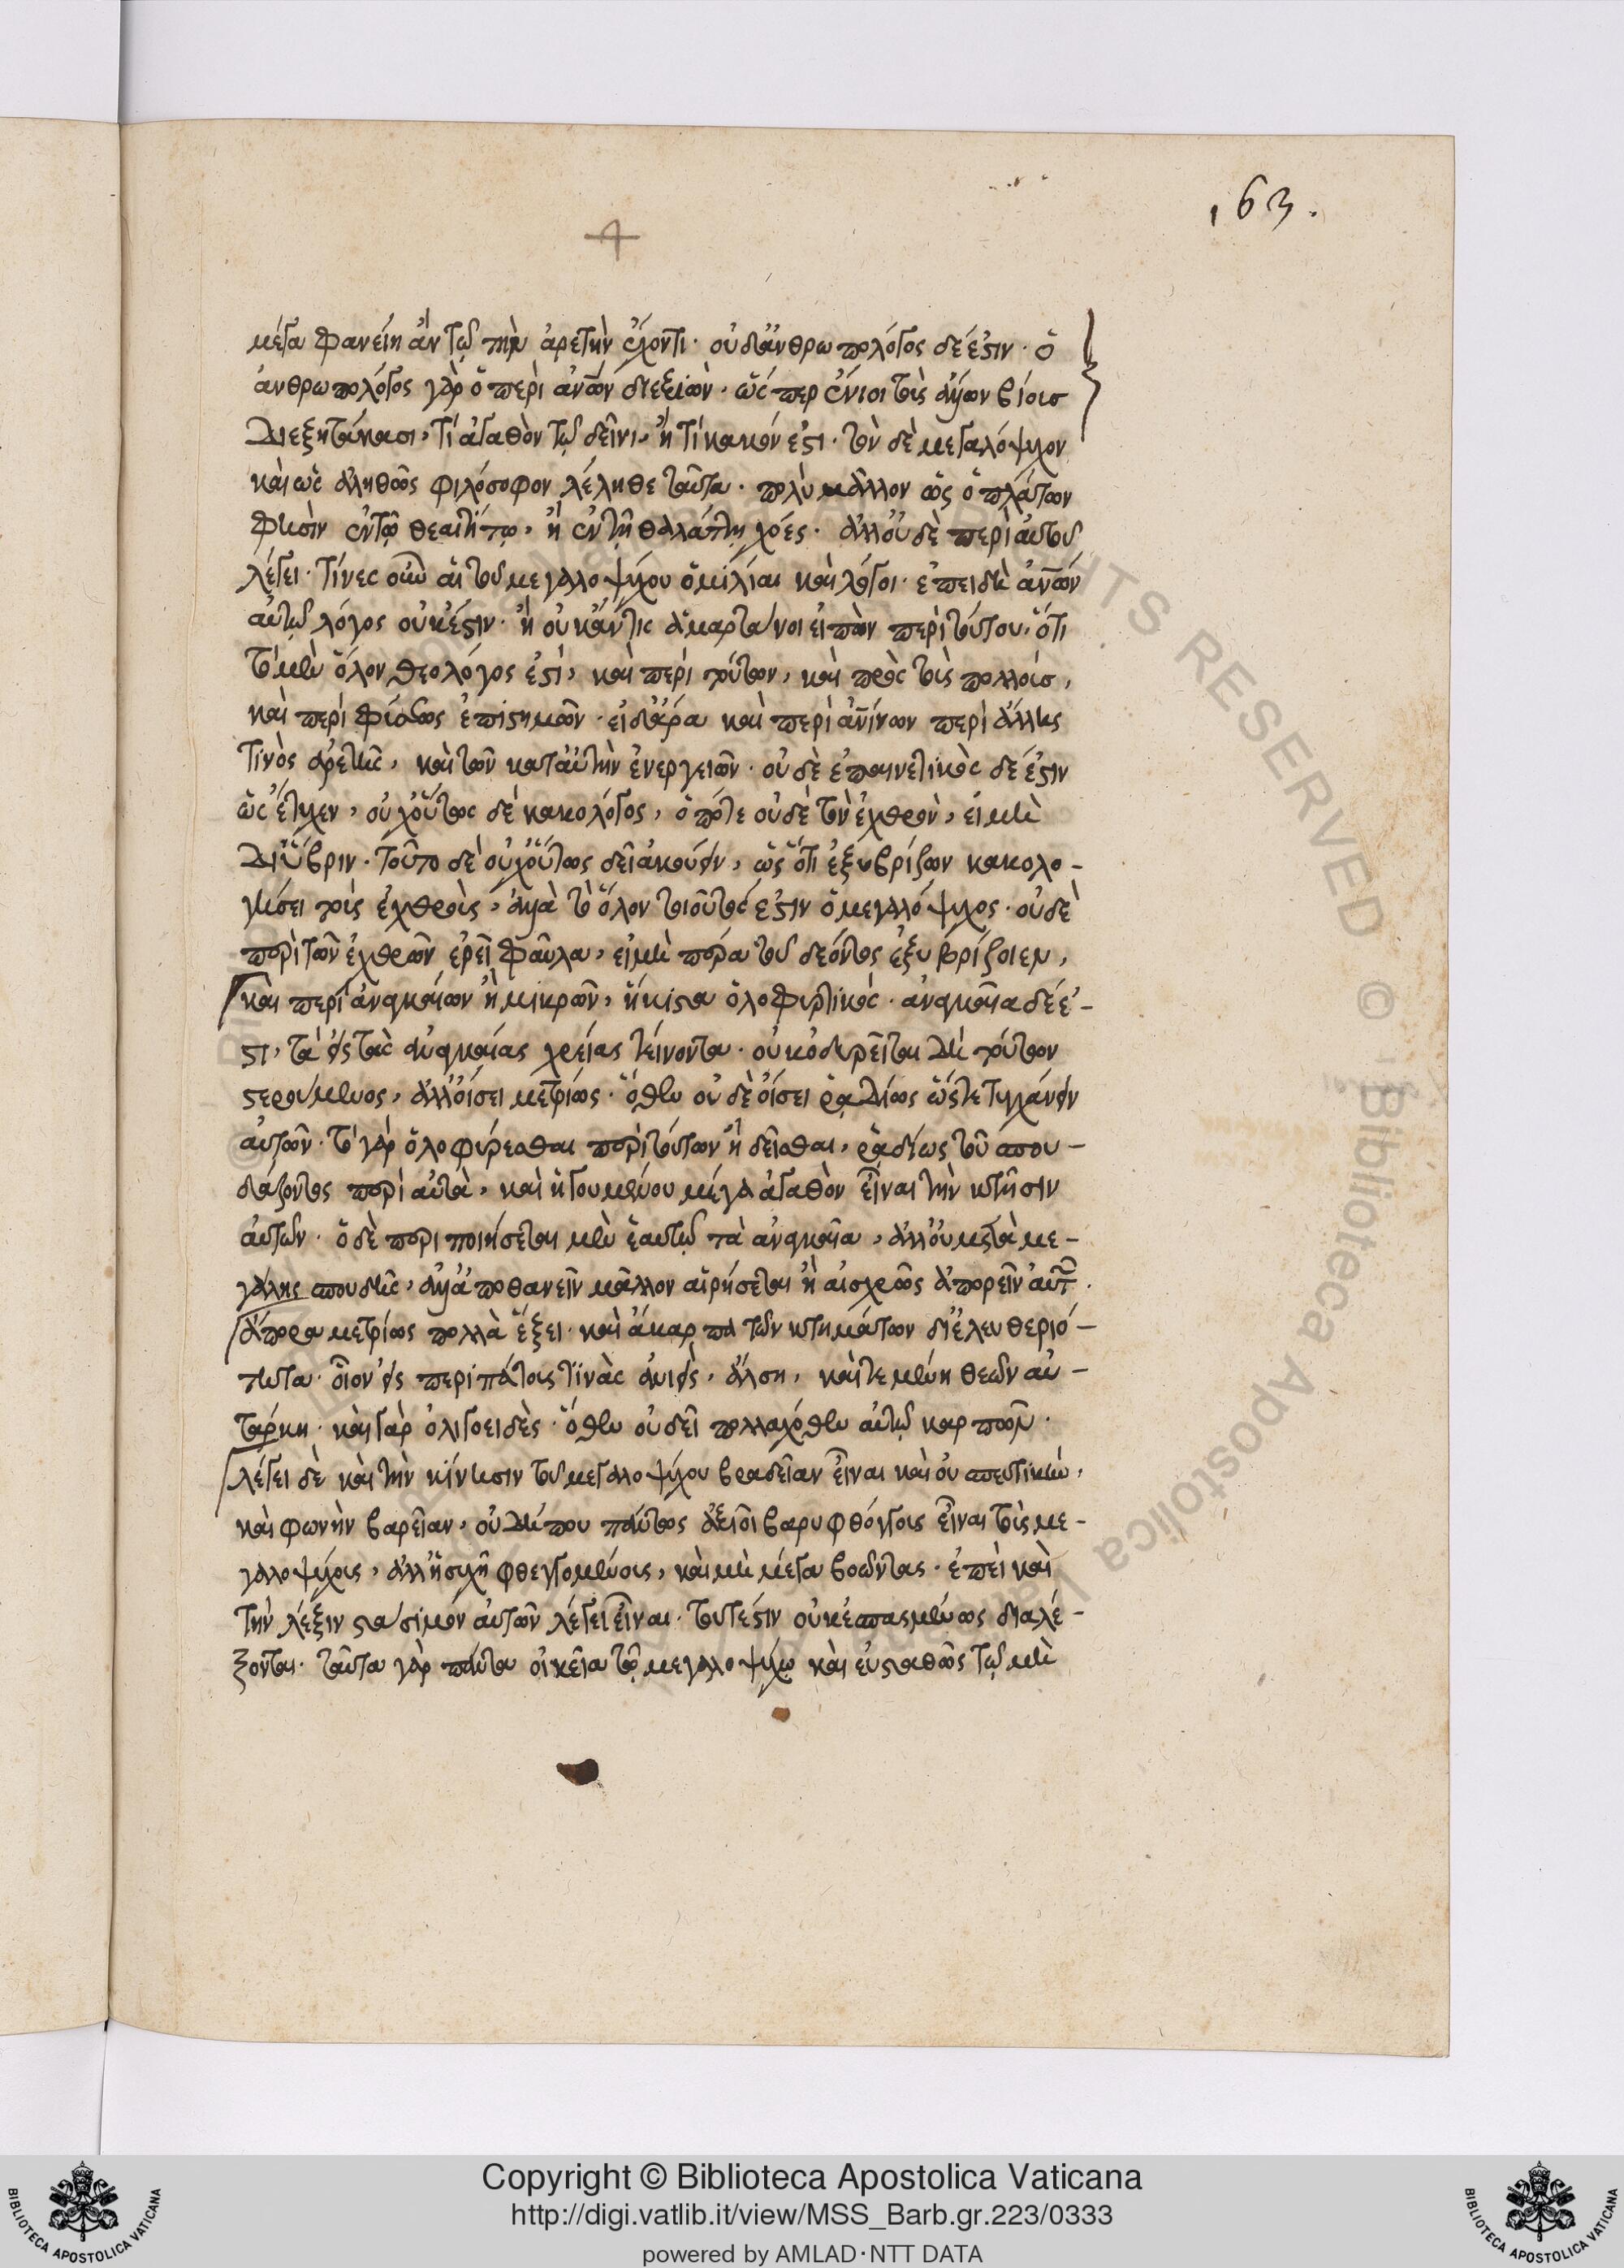 163.
μέγα φανείη ἂν τῷ τὴν ἀρετὴν ἔχοντι. οὐδ' ἀνθρωπολόγος δέ ἐστιν. ὁ
ἀνθρωπολόγος γὰρ ὁ περὶ ἀνων διεξιὼν. ὥσπερ ἔνιοι τοῖς ἄλλων βίοις
διεξητάκασι, τί ἀγαθὸν τῷ δεῖνι, ἢ τί κακόν ἐστι. τὸν δὲ μεγαλόψυχον
καὶ ὡς ἀληθῶς φιλόσοφον λέληθε ταῦτα. πολὺ μᾶλλον ὡς ὁ πλάτων
φησὶν ἐν τῷ θεαιτήτῳ, ἢ ἐν τῇ θαλάττῃ χόες. ἀλλ' οὐδὲ περὶ αὐτοῦ
λέγει. τίνες οὖν αἱ τοῦ μεγαλοψύχου ὁμιλίαι καὶ λόγοι. ἐπειδὴ ἀνων
αὐτῷ λόγος οὐκ ἔστιν. ἢ οὐκ ἄν τις ἁμαρτάνοι εἰπὼν περὶ τούτου, ὅτι
τὸ μὲν ὅλον θεολόγος ἐστὶ, καὶ περὶ τούτων, καὶ πρὸς τοὺς πολλοὺς,
καὶ περὶ φύσεως ἐπιστημῶν. εἰ δ' ἄρα καὶ περὶ ἀνίνων περὶ ἄλλης
τινὸς ἀρετῆς, καὶ τῶν κατ' αὐτὴν ἐνεργειῶν. οὐδὲ ἐπαινετικὸς δέ ἐστιν
ὡς ἔτυχεν, οὐχ οὕτως δὲ κακολόγος, ὁπότε οὐδὲ τῶν ἐχθρῶν, εἰ μὴ
δι' ὕβριν. τοῦτο δὲ οὐχ οὕτως δεῖ ἀκούειν, ὡς ὅτι ἐξυβρίζων κακολο-
γήσει τοὺς ἐχθροὺς, ἀλλὰ τὸ ὅλον τοιοῦτός ἐστιν ὁ μεγαλόψυχος. οὐδὲ
περὶ τῶν ἐχθρῶν ἐρεῖ φαῦλα, εἰ μὴ παρα τοῦ δεόντος ἐξυβρίζοιεν,
καὶ περὶ ἀναγκαίων ἢ μικρῶν, ἥκιστα ὀλοφυρτικός. ἀναγκαῖα δέ ἐ-
στι, τὰ εἰς τὰς ἀναγκαίας χρείας τείνοντα. οὐκ ὀδυρεῖται δὴ τούτων
στερούμενος, ἀλλ' οἴσει μετρίως. ὅθεν οὐδὲ οἴσει ῥαδίως ὥστε τυγχάνειν
αὐτῶν. τὸ γὰρ ὀλοφύρεσθαι περὶ τούτων ἢ δεῖσθαι, ῥαδίως τοῦ σπου-
δάζοντος περὶ αὐτὰ, καὶ ἡγουμένου μέγα ἀγαθὸν εἶναι τὴν κτῆσιν
αὐτῶν. ὁ δὲ περιποιήσεται μὲν ἑαυτῷ τὰ ἀναγκαῖα, ἀλλ' οὐ μετὰ με-
γάλης σπουδῆς, ἀλλ' ἀποθανεῖν μᾶλλον αἱρήσεται ἢ αἰσχρῶς ἀπορεῖν αὐτ.
ἄπορα μετρίως πολλὰ ἕξει. καὶ ἄκαρπα τῶν κτημάτων δι' ἐλευθεριό-
τητα. οἷον εἰς περιπάτους τινὰς ἀνιεὶς, ἄλση, καὶ τεμένη θεῶν αὐ-
τάρκη. καὶ γὰρ ὀλιγοειδὲς. ὅθεν οὐ δεῖ πολλαχόθεν αὐτῷ καρπῶν.
λέγει δὲ καὶ τὴν κίνησιν τοῦ μεγαλοψύχου βραδεῖαν εἶναι καὶ οὐ σπευστικὴν,
καὶ φωνὴν βαρεῖαν, οὐ δή που πάντως ἀξιοῖ βαρυφθόγγους εἶναι τοὺς με-
γαλοψύχους, ἀλλ' ἡσυχῆ φθεγγομένους, καὶ μὴ μέγα βοῶντας. ἐπεὶ καὶ
τὴν λέξιν στάσιμον αὐτῶν λέγει εἶναι. τουτέστιν οὐκ ἐσπασμένως διαλέ-
ξονται. ταῦτα γὰρ πάντα οἰκεῖα τῷ μεγαλοψύχῳ καὶ εὐσταθῶς τῷ μὴ
Copyright © Biblioteca Apostolica Vaticana
http://digi.vatlib.it/view/MSS_Barb.gr.223/0333
powered by AMLAD·NTT DATA